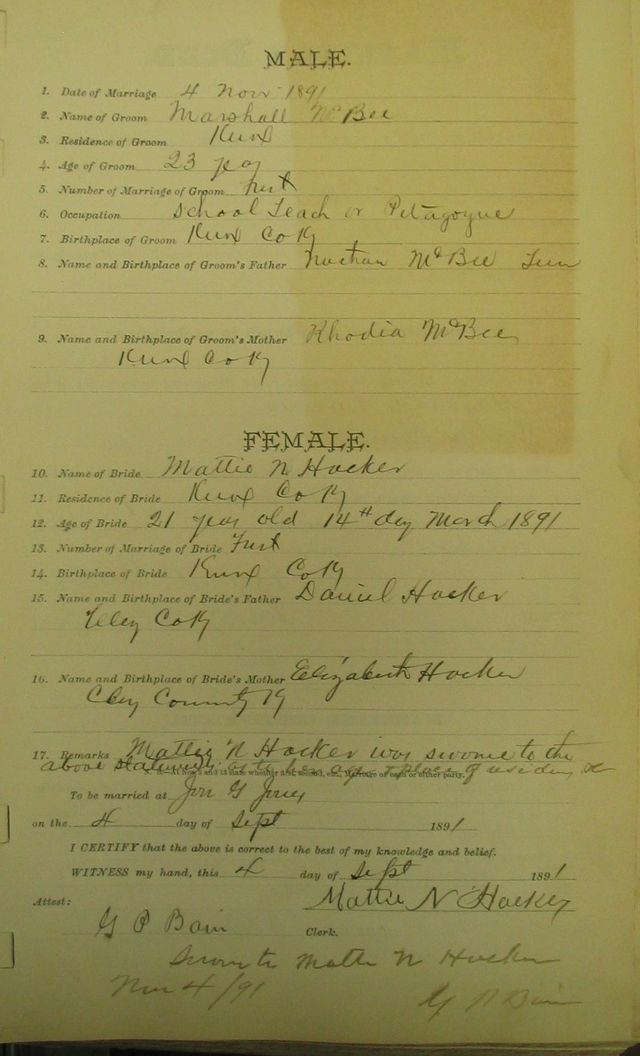 MALE.
1. Date of Marriage 4 Nov 1891
2. Name of Groom Marshall McBee
3. Residence of Groom Knox
4. Age of Groom 23 years
5. Number of Marriage of Groom First
6. Occupation School Teach or Petagogue
7. Birthplace of Groom Knox Co Ky
8. Name and Birthplace of Groom's Father Nathan McBee Tenn
9. Name and Birthplace of Groom's Mother Rhodia McBee
Knox Co Ky
FEMALE.
10. Name of Bride Mattie N Hacker
11. Residence of Bride Knox Co Ky
12. Age of Bride 21 years old 14th day March 1891
13. Number of Marriage of Bride First
14. Birthplace of Bride Knox Co Ky
15. Name and Birthplace of Bride's Father Daniel Hacker
Clay Co Ky
16. Name and Birthplace of Bride's Mother Elizabeth Hacker
Clay County Ky
17. Remarks Mattie N Hacker was sworne to the
above statement as to her age & place of residence
At Nos. 5 and 13 state whether first, second, etc., Marriage of each or either party.
To be married at Jon G Jones
on the 4 day of Sept 1891
I CERTIFY that the above is correct to the best of my knowledge and belief.
WITNESS my hand, this 4 day of Sept 1891
Attest: Mattie N Hacker
G P Bain Clerk.
Sworn to Mattie N Hacker
Nov 4/91 G P Bain